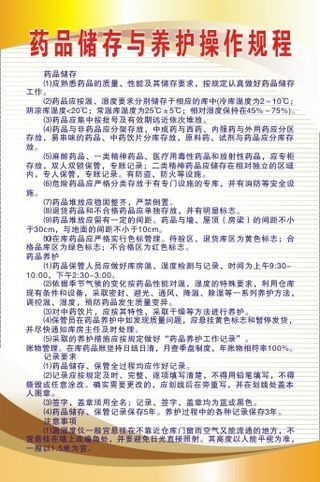 药品储存与养护操作规程
药品储存
(1)应熟悉药品的质量、性能及其储存要求，按规定认真做好药品储存
工作。
(2)药品应按温、湿度要求分别储存于相应的库中(冷库温度为2－10℃;
阴凉库温度<20℃; 常温库温度为25℃±5℃; 相对湿度保持在45%－75%)。
(3)药品应集中按批号及有效期远近依次堆放。
(4)药品与非药品应分架存放，中成药与西药、内服药与外用药应分区
存放，易串味的药品、中药饮片分库存放，原料药、试剂与药品应分库存
放。
(5)麻醉药品、一类精神药品、医疗用毒性药品和放射性药品，应专柜
存放，双人双锁保管，专账记录; 二类精神药品应储存在相对独立的区域
内，专人保管，专账记录。有防盗、防火等设施。
(6)危险药品应严格分类存放于有专门设施的专库，并有消防等安全设
施。
(7)药品堆放应稳固整齐，严禁倒置。
(8)退货药品和不合格药品应单独存放，并有明显标志。
(9)药品堆放应留有一定的间距。药品与墙、屋顶（房梁）的间距不小
于30cm，与地面的间距不小于10cm。
⑽在库药品应严格实行色标管理。待验区、退货库区为黄色标志; 合
格品库区为绿色标志; 不合格区为红色标志。
药品养护
(1)药品保管人员应做好库房温、湿度检测与记录，时间为上午9:30-
10:00，下午2:30-3:00。
(2)依据季节气候的变化按药品性能对温、湿度的特殊要求，利用仓库
现有条件和设备，采取密封、避光、通风、降温、除湿等一系列养护方法，
调控温、湿度，预防药品发生质量变异。
(3)对中药饮片，应按其特性，采取干燥等方法进行养护。
(4)保管员在药品养护中如发现质量问题，应悬挂黄色标志和暂停发货，
并尽快通知库房主任及时处理。
(5)采取的养护措施应按规定做好“药品养护工作记录”。
账物管理。在库药品账坚持日结日清，月查季盘制度，年账物相符率100%。
记录要求
(1)药品储存、保管全过程均应作好记录。
(2)记录应按规定及时、完整、逐项填写清楚，不得用铅笔填写，不得
撕毁或任意涂改。确实需要更改的，应划线后在旁重写，并在划线处盖本
人图章。
(3)签字，盖章须用全名; 记录、签字、盖章均为蓝或黑色。
(4)药品储存、保管记录保存5年。养护过程中的各种记录保存3年。
注意事项
(1)温湿度仪一般宜悬挂在不靠近仓库门窗而空气又能流通的地方，不
宜悬挂在墙上或墙角处，并要避免日光直接照射。其高度以人能平视为准，
一般以1.5米为宜。